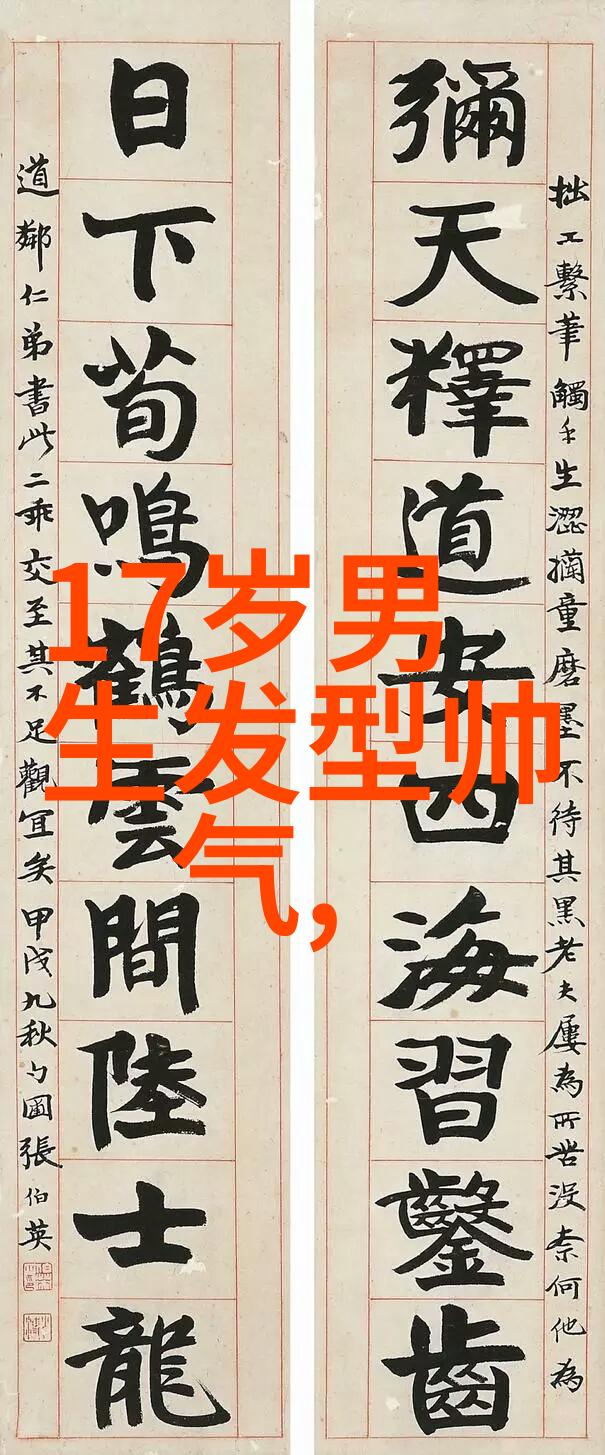 拙工繫筆觸手生澀擱童磨墨不待其黑老夫屢為所苦沒柰何他為
彌天釋道安四海習鑿齒
日下荀鳴鶴雲間陸士龍
道鄰仁弟書此二乖交至其不足觀宜矣甲戌九秋勺圃張伯英
17岁男
生发型帅
气,